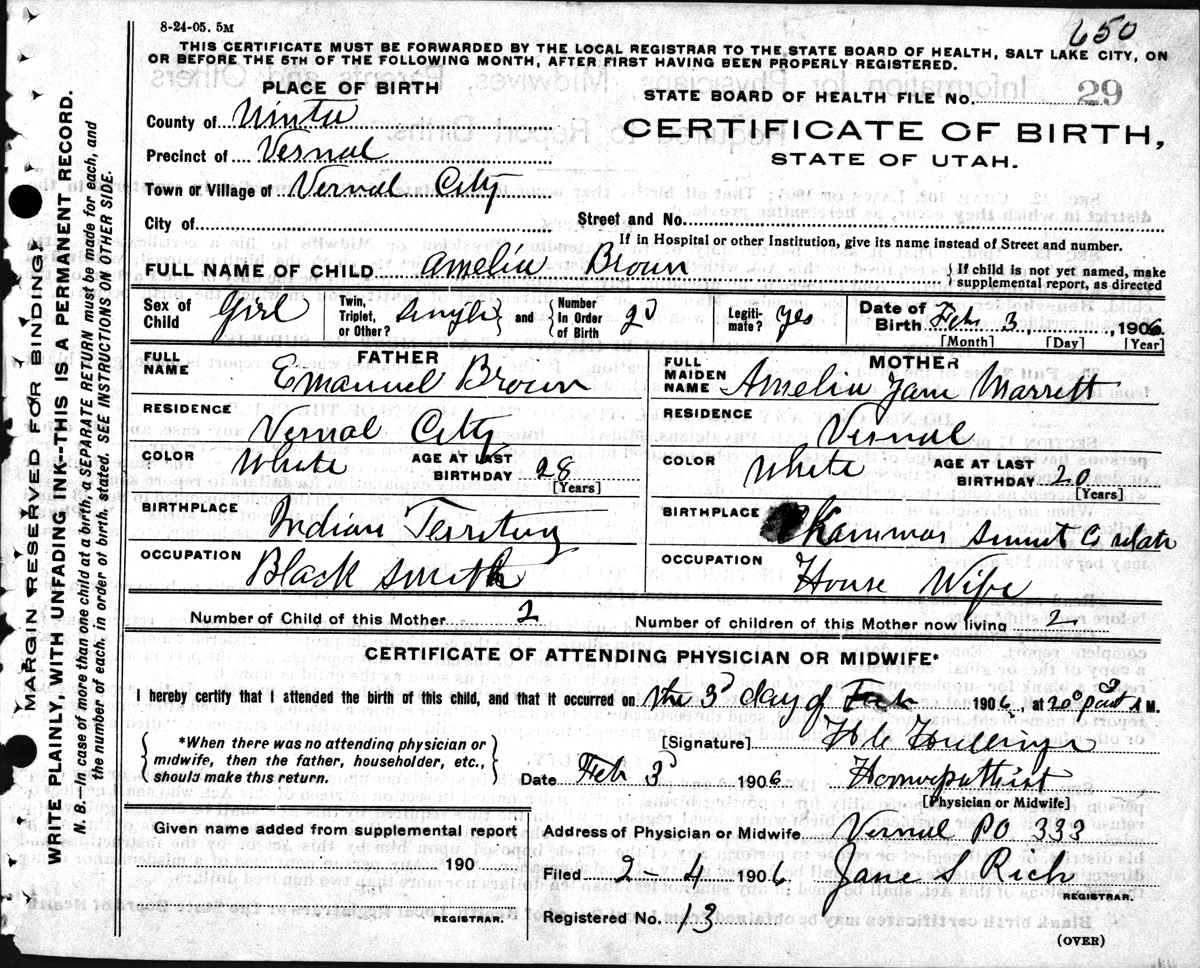 8-24-05. 5M
650
THIS CERTIFICATE MUST BE FORWARDED BY THE LOCAL REGISTRAR TO THE STATE BOARD OF HEALTH, SALT LAKE CITY, ON
OR BEFORE THE 5TH OF THE FOLLOWING MONTH, AFTER FIRST HAVING BEEN PROPERLY REGISTERED.
MARGIN RESERVED FOR BINDING!
WRITE PLAINLY, WITH UNFADING INK--THIS IS A PERMANENT RECORD.
N. B.—In case of more than one child at a birth, a SEPARATE RETURN must be made for each, and
the number of each, in order of birth, stated. SEE INSTRUCTIONS ON OTHER SIDE.
PLACE OF BIRTH
County of Uinta
Precinct of Vernal
Town or Village of Vernal City
City of
STATE BOARD OF HEALTH FILE No. 29
CERTIFICATE OF BIRTH,
STATE OF UTAH.
Street and No.
If in Hospital or other Institution, give its name instead of Street and number.
FULL NAME OF CHILD Amelia Brown
{If child is not yet named, make
supplemental report, as directed
Sex of Child Girl
Twin, Triplet, or Other? single and Number In Order of Birth 2d
Legitimate? Yes
Date of Birth Feb 3, 1906
[Month] [Day] [Year]
FATHER
FULL NAME Emanuel Brown
RESIDENCE Vernal City
COLOR White AGE AT LAST BIRTHDAY 28
[Years]
BIRTHPLACE Indian Territory
OCCUPATION Black smith
MOTHER
FULL MAIDEN NAME Amelia Jane Marrett
RESIDENCE Vernal
COLOR White AGE AT LAST BIRTHDAY 20
[Years]
BIRTHPLACE Kammas
OCCUPATION House Wife
Number of Child of this Mother 2
Number of children of this Mother now living 2
CERTIFICATE OF ATTENDING PHYSICIAN OR MIDWIFE*
I hereby certify that I attended the birth of this child, and that it occurred on the 3d day of Feb 1906, at A M.
{*When there was no attending physician or
midwife, then the father, householder, etc.,
should make this return.}
[Signature]
Date Feb 3d 1906 Homeopathist
[Physician or Midwife]
Given name added from supplemental report
190
REGISTRAR.
Address of Physician or Midwife Vernal PO 333
Filed 2-4 1906 Jane S Rich
REGISTRAR.
Registered No. 13
(OVER)